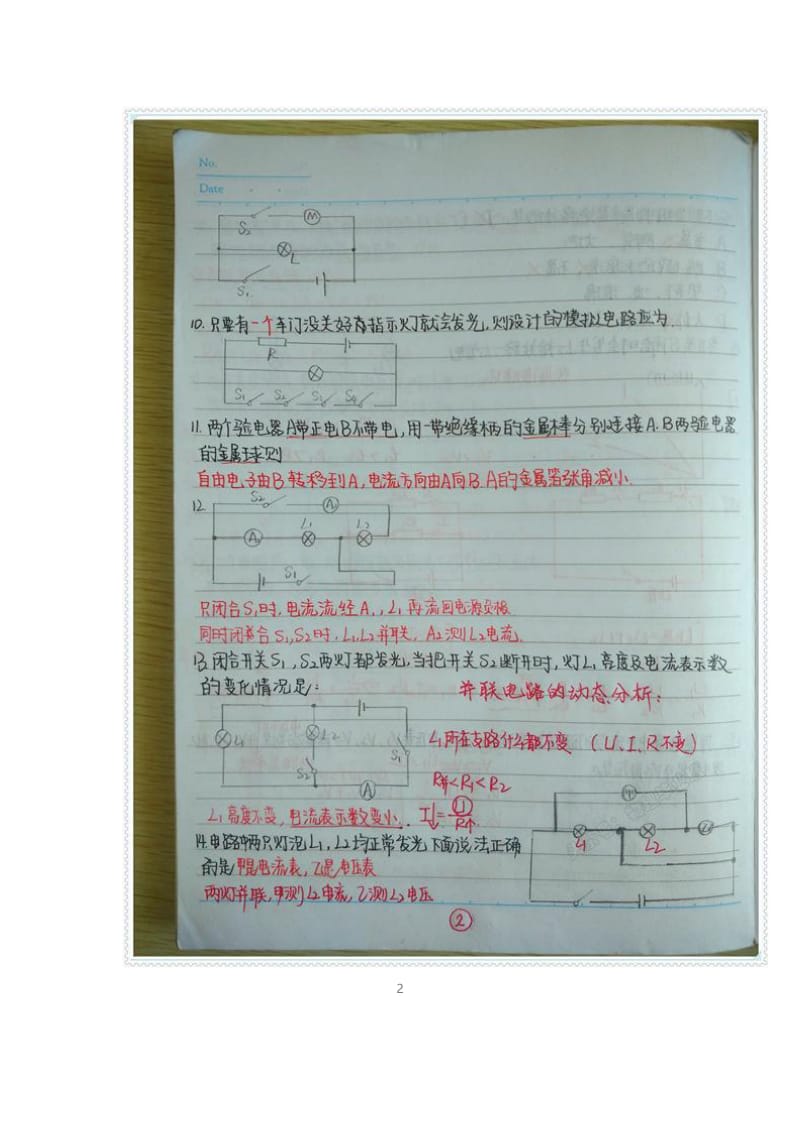 No.
Date
S₂ M
L
S₁
10. 只要有一个车门没关好有指示灯就会发光,则设计的模拟电路应为
R
S₁ S₂ S₃ S₄
11. 两个验电器A带正电B不带电,用一带绝缘柄的金属棒分别连接A.B两验电器
的金属球则
自由电子由B转移到A,电流方向由A向B.A的金属箔张角减小.
12.
S₂ A
A L₁ L₂
S₁
只闭合S₁时,电流流经A₁,L₁再流回电源负极
同时闭合S₁,S₂时,L₁,L₂并联,A₂测L₂电流.
13. 闭合开关S₁,S₂两灯都发光,当把开关S₂断开时,灯L₁亮度及电流表示数
的变化情况是: 并联电路的动态分析:
L₁ L₂ S₁
L₁所在支路什么都不变 (U.I.R不变)
S₂
A
R并<R₁<R₂
L₁亮度不变,电流表示数变小. I↓=U/R↑
14.电路中两只灯泡L₁,L₂均正常发光下面说法正确
的是甲是电流表,乙是电压表
L₁ L₂
两灯并联,甲测L₂电流,乙测L₂电压
2
2